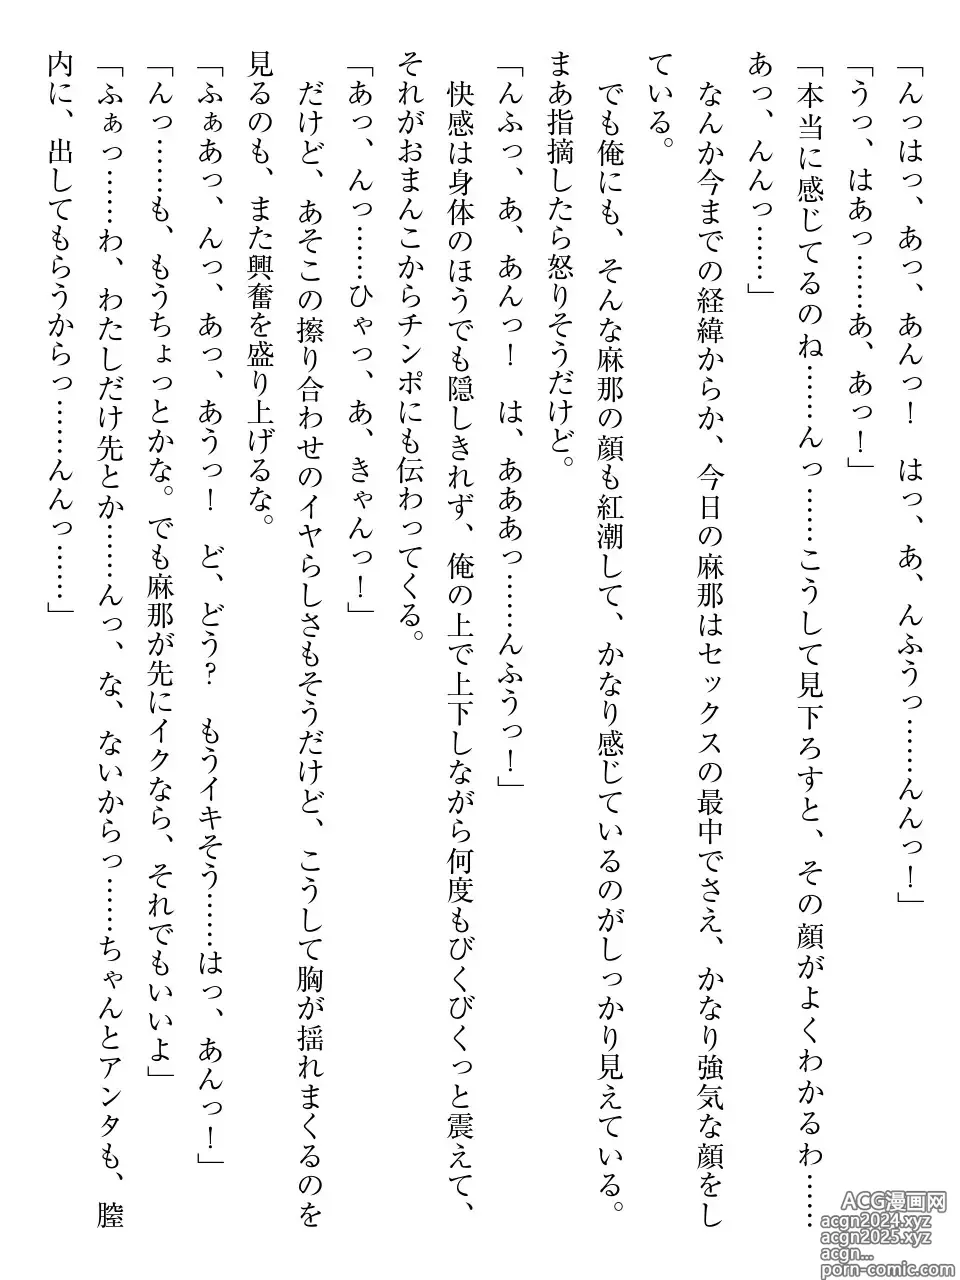 「んっはっ、あっ、あんっ！　はっ、あ、んふうっ……んんっ！」
「うっ、はあっ……あ、あっ！」
「本当に感じてるのね……んっ……こうして見下ろすと、その顔がよくわかるわ……
あっ、んんっ……」
　なんか今までの経緯からか、今日の麻那はセックスの最中でさえ、かなり強気な顔をし
ている。
　でも俺にも、そんな麻那の顔も紅潮して、かなり感じているのがしっかり見えている。
まあ指摘したら怒りそうだけど。
「んふっ、あ、あんっ！　は、あああっ……んふうっ！」
　快感は身体のほうでも隠しきれず、俺の上で上下しながら何度もびくびくっと震えて、
それがおまんこからチンポにも伝わってくる。
「あっ、んっ……ひゃっ、あ、きゃんっ！」
　だけど、あそこの擦り合わせのイヤらしさもそうだけど、こうして胸が揺れまくるのを
見るのも、また興奮を盛り上げるな。
「ふぁあっ、んっ、あっ、あうっ！　ど、どう？　もうイキそう……はっ、あんっ！」
「んっ……も、もうちょっとかな。でも麻那が先にイクなら、それでもいいよ」
「ふぁっ……わ、わたしだけ先とか……んっ、な、ないからっ……ちゃんとアンタも、膣
内に、出してもらうからっ……んんっ……」
ACG漫画网
acgn2024.xyz
acgn2025.xyz
acgn...
porn-comic.com